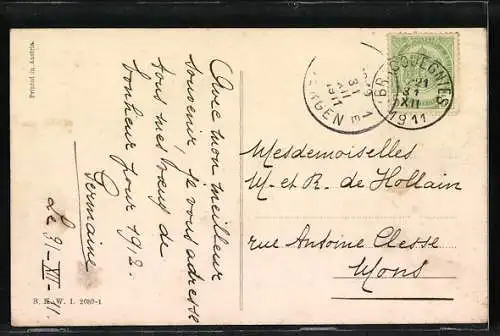 Printed in Austria.
Avec mon meilleur
souvenir, je vous adresse
tous mes vœux de
bonheur pour 1912.
Germaine
Le 31-XII-11.
B. K. W. I. 2089-1
BERGEN
31
XII
1911
21
31
XII
1911
Mesdemoiselles
M. et R. de Hollain
rue Antoine Clesse
Mons